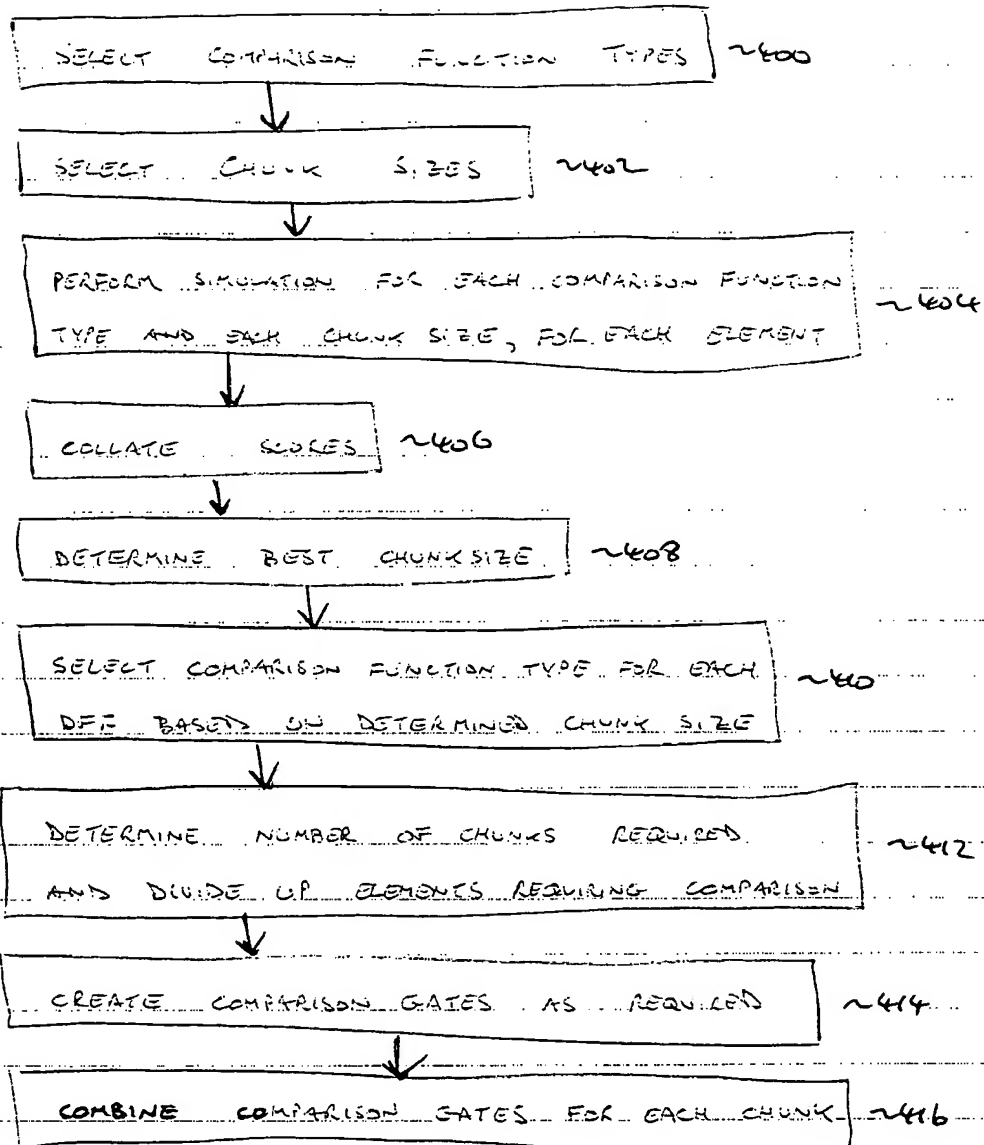 SELECT COMPARISON FUNCTION TYPES ~400
SELECT CHUNK SIZES ~402
PERFORM SIMULATION FOR EACH COMPARISON FUNCTION
TYPE AND EACH CHUNK SIZE, FOR EACH ELEMENT ~404
COLLATE SCORES ~406
DETERMINE BEST CHUNKSIZE ~408
SELECT COMPARISON FUNCTION TYPE FOR EACH
DFF BASED ON DETERMINED CHUNK SIZE ~410
DETERMINE NUMBER OF CHUNKS REQUIRED
AND DIVIDE UP ELEMENTS REQUIRING COMPARISON ~412
CREATE COMPARISON GATES AS REQUIRED ~414
COMBINE COMPARISON GATES FOR EACH CHUNK ~416